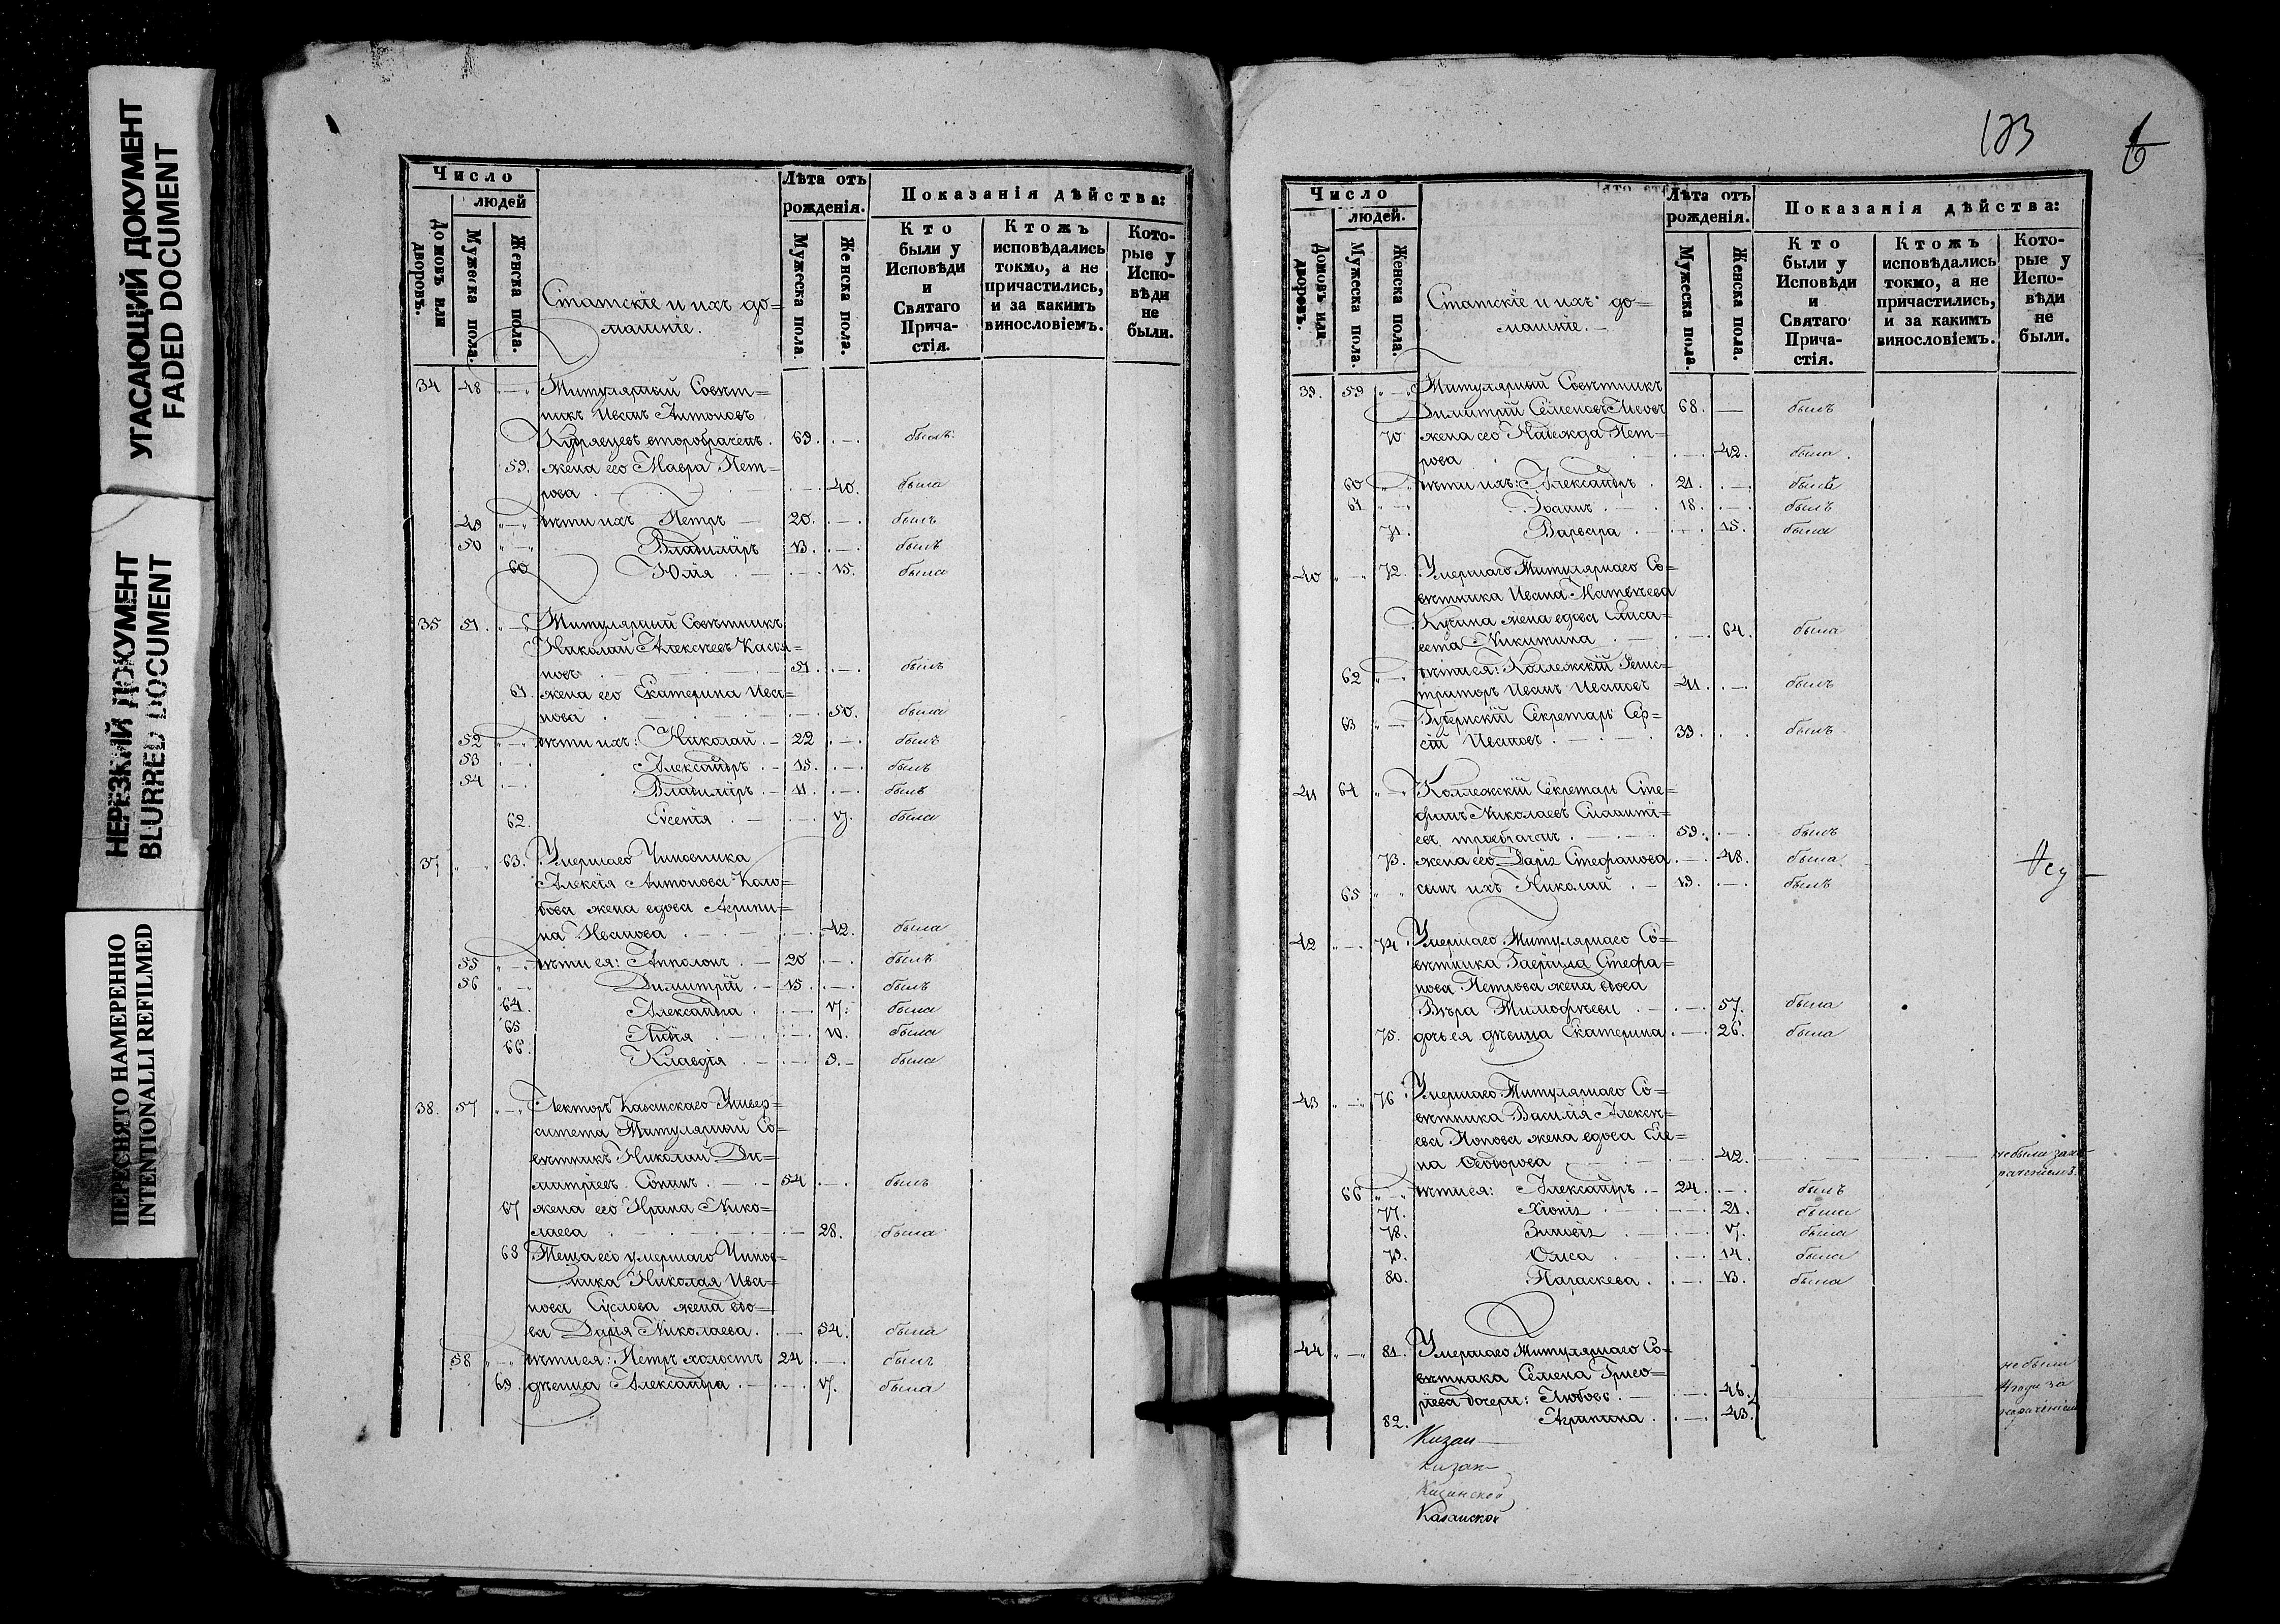 УГАСАЮЩИЙ ДОКУМЕНТ
FADED DOCUMENT
НЕРЕЗКИЙ ДОКУМЕНТ
BLURRED DOCUMENT
ПЕРЕСНЯТО НАМЕРЕННО
INTENTIONALLI REFILMED
Число
людей
Домовъ или дворовъ.
Мужеска пола.
Женска пола.
Статскіе и ихъ до=
машніе.
Лѣта отъ
рожденія.
Мужеска пола.
Женска пола.
Показанія дѣйства:
Кто
были у
Исповѣди
и
Святаго
Прича-
стія.
Ктожъ
исповѣдались
токмо, а не
причастились,
и за какимъ
винословіемъ.
Кото-
рые у
Испо-
вѣди
не
были.
34 48 Титулярный Совѣт=
никъ Иванъ Антоновъ
Кудрявцевъ второбраченъ. 69. былъ
59. жена его Мавра Пет=
рова 40. была
49 дѣти ихъ Петръ 20. былъ
50 Владиміръ 13. былъ
60 Юлія 15. была
35 51. Титулярный Совѣтникъ
Николай Алексѣевъ Касья=
новъ 51 былъ
61. жена его Екатерина Ива=
нова 50. была
52 дѣти ихъ: Николай 22 былъ
53 Александръ 15. былъ
54 Владиміръ 11. былъ
62. Евгенія 17. была
37 63. Умершаго Чиновника
Алексія Антонова Коло=
бова жена вдова Агрипи=
на Иванова 42. была
55 дѣти ея: Апполонъ 20 былъ
56 Димитрій 15 былъ
64. Александра 17. была
65 Лидія 10. была
66. Клавдія 9. была
38. 57 Лекторъ Казанскаго Универ=
ситета Титулярный Со=
вѣтникъ Николай Ди=
митріевъ Сонинъ 54 былъ
67 жена его Ирина Нико=
лаева 28. была
68 Теща его умершаго Чинов=
ника Николая Ива=
нова Суслова жена вдо=
ва Дарія Николаева. 54. была
58 дѣти ея: Петръ холостъ 24 былъ
69. дѣвица Александра 17. была
173
6
Число
людей.
Домовъ или дворовъ.
Мужеска пола.
Женска пола.
Статскіе и ихъ до=
машніе.
Лѣта отъ
рожденія.
Мужеска пола.
Женска пола.
Показанія дѣйства:
Кто
были у
Исповѣди
и
Святаго
Прича-
стія.
Ктожъ
исповѣдались
токмо, а не
причастились,
и за какимъ
винословіемъ.
Кото-
рые у
Испо-
вѣди
не
были.
39. 59 Титулярный Совѣтникъ
Димитрій Семеновъ 68. былъ
70 жена его Надежда Пет=
рова 42. была
60 дѣти ихъ: Александръ 21. былъ
61 Іоаннъ 18. былъ
71. Варвара 15. была
40 72. Умершаго Титулярнаго Со=
вѣтника Ивана Матвѣева
Кусина жена вдова Елиса=
вета Никитина 64. была
62 дѣти ея: Коллежскій Регис=
траторъ Иванъ Ивановъ 41. былъ
63 Губернскій Секретарь Сер=
гій Ивановъ 39. былъ
41 64 Коллежскій Секретарь Сте=
фанъ Николаевъ
троебраченъ 59. былъ
73. жена его Дарія Стефанова 48. была
65 сынъ ихъ Николай 19. былъ
42 74. Умершаго Титулярнаго Со=
вѣтника Гавріила Стефа=
нова Петрова жена вдова
Вѣра Тимофѣева 57. была
75. дочь ея дѣвица Екатерина 26. была
43 76 Умершаго Титулярнаго Со=
вѣтника Василія Алексѣ=
ева Попова жена вдова Еле=
на Феодорова 42. не были за не
раченіемъ
66 дѣти ея: Александръ 24. былъ
77. Хіонія 21. была
78. Зиновія 17. была
79. Олга 14. была
80. Параскева 13. была
44 81. Умершаго Титулярнаго Со=
вѣтника Семена Григо=
рьева дочери: Любовь 46. не были
82. Агрипина 43. 4 года за
нераченіемъ
Казан
Казан
Казанской
Казанской